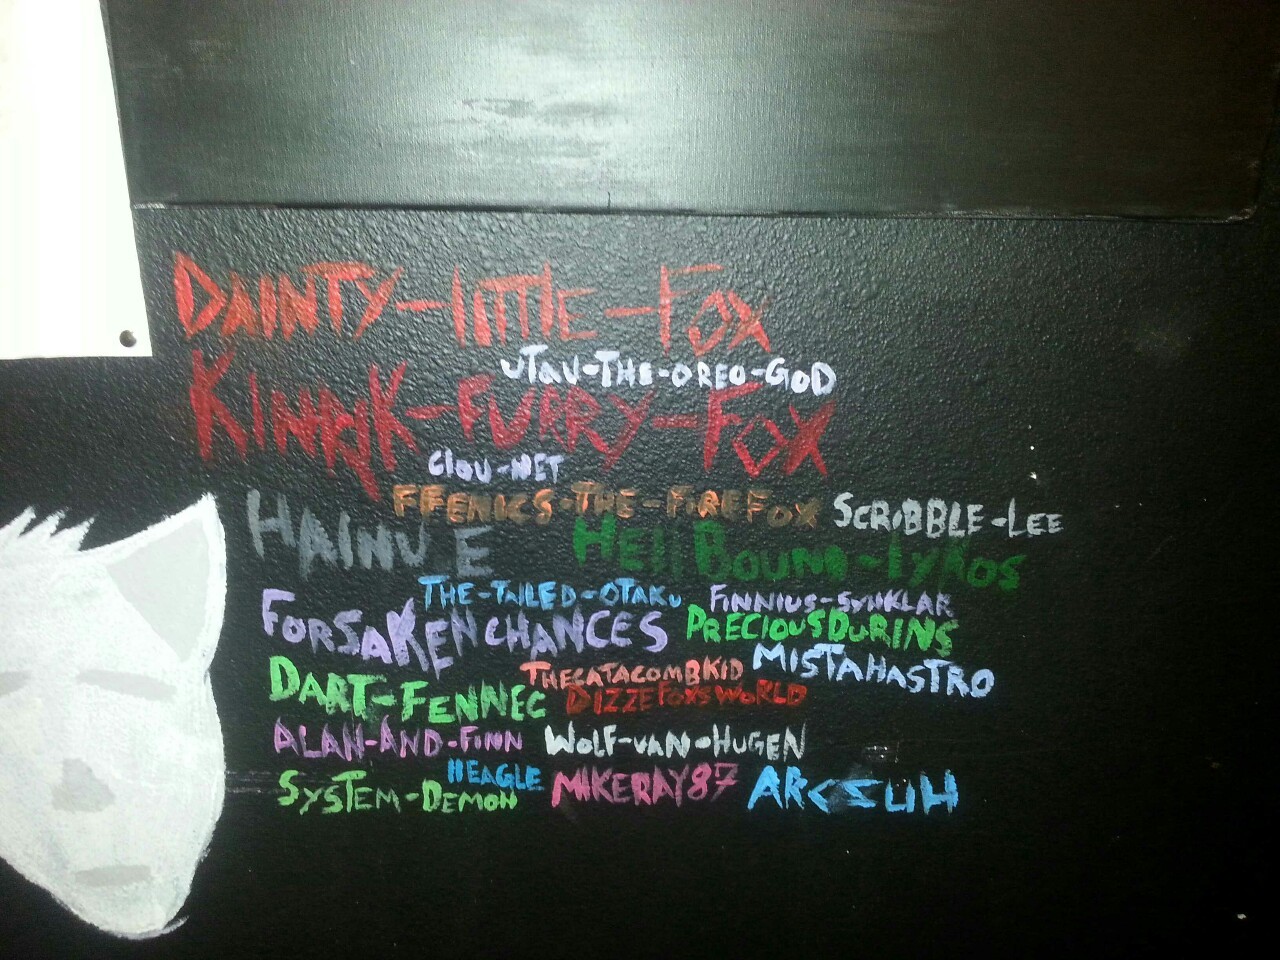 DAINTY-LITTLE-FOX
UTAU-THE-OREO-GOD
FURRY-FOX
CLOU-NET
FFENICS-THE-FIREFOX SCRIBBLE-LEE
HAINU E HELLBOUND-LYKOS
THE-TAILED-OTAKU FINNIUS-SYNKLAR
FORSAKENCHANCES PRECIOUSDURINS
THECATACOMBKID MISTAHASTRO
DART-FENNEC DIZZEFOXSWORLD
ALAN-AND-FINN WOLF-VAN-HUGEN
HEAGLE
SYSTEM-DEMON MIKERAY87